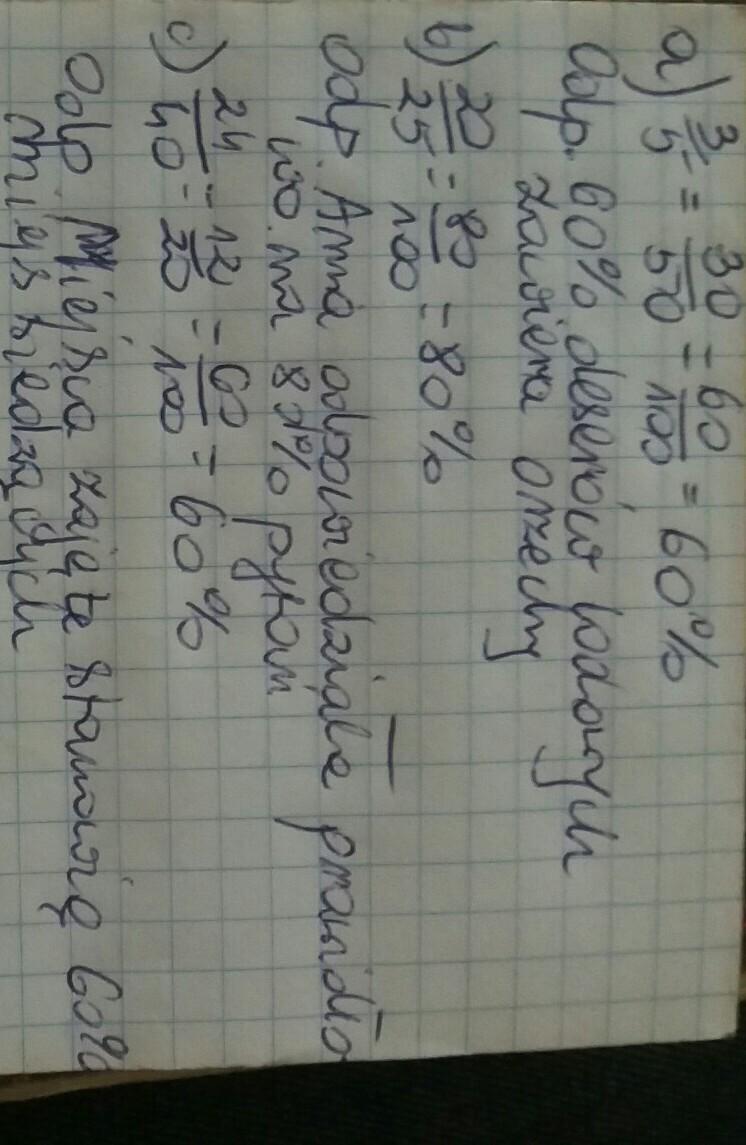 a) 3/5 = 30/50 = 60/100 = 60%
Odp. 60% deserów lodowych
zawiera orzechy
b) 20/25 = 80/100 = 80%
Odp. Anna odpowiedziała prawidło
wo. na 80% pytań
c) 24/40 = 12/20 = 60/100 = 60%
Odp. Miejsca zajęte stanowią 60%
miejs siedzących